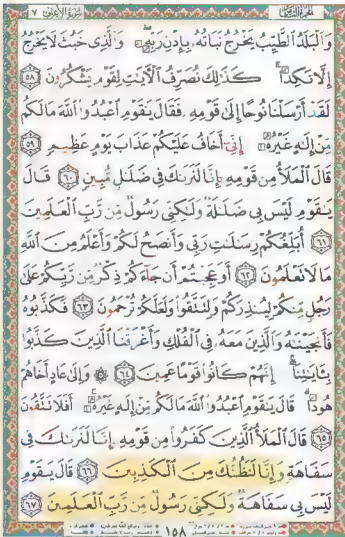 الجزء الثامن سورة الأعراف ٧
وَالْبَلَدُ الطَّيِّبُ يَخْرُجُ نَبَاتُهُ بِإِذْنِ رَبِّهِ وَالَّذِي خَبُثَ لَا يَخْرُجُ
إِلَّا نَكِدًا كَذَٰلِكَ نُصَرِّفُ الْآيَاتِ لِقَوْمٍ يَشْكُرُونَ ٥٨
لَقَدْ أَرْسَلْنَا نُوحًا إِلَىٰ قَوْمِهِ فَقَالَ يَٰقَوْمِ اعْبُدُوا اللَّهَ مَا لَكُم
مِّنْ إِلَٰهٍ غَيْرُهُ إِنِّي أَخَافُ عَلَيْكُمْ عَذَابَ يَوْمٍ عَظِيمٍ ٥٩
قَالَ الْمَلَأُ مِن قَوْمِهِ إِنَّا لَنَرَىٰكَ فِي ضَلَٰلٍ مُّبِينٍ ٦٠ قَالَ
يَٰقَوْمِ لَيْسَ بِي ضَلَٰلَةٌ وَلَٰكِنِّي رَسُولٌ مِّن رَّبِّ الْعَٰلَمِينَ
٦١ أُبَلِّغُكُمْ رِسَٰلَٰتِ رَبِّي وَأَنصَحُ لَكُمْ وَأَعْلَمُ مِنَ اللَّهِ
مَا لَا تَعْلَمُونَ ٦٢ أَوَعَجِبْتُمْ أَن جَاءَكُمْ ذِكْرٌ مِّن رَّبِّكُمْ عَلَىٰ
رَجُلٍ مِّنكُمْ لِيُنذِرَكُمْ وَلِتَتَّقُوا وَلَعَلَّكُمْ تُرْحَمُونَ ٦٣ فَكَذَّبُوهُ
فَأَنجَيْنَٰهُ وَالَّذِينَ مَعَهُ فِي الْفُلْكِ وَأَغْرَقْنَا الَّذِينَ كَذَّبُوا
بِـَٔايَٰتِنَا إِنَّهُمْ كَانُوا قَوْمًا عَمِينَ ٦٤ ۞ وَإِلَىٰ عَادٍ أَخَاهُمْ
هُودًا قَالَ يَٰقَوْمِ اعْبُدُوا اللَّهَ مَا لَكُم مِّنْ إِلَٰهٍ غَيْرُهُ أَفَلَا تَتَّقُونَ
٦٥ قَالَ الْمَلَأُ الَّذِينَ كَفَرُوا مِن قَوْمِهِ إِنَّا لَنَرَىٰكَ فِي
سَفَاهَةٍ وَإِنَّا لَنَظُنُّكَ مِنَ الْكَٰذِبِينَ ٦٦ قَالَ يَٰقَوْمِ
لَيْسَ بِي سَفَاهَةٌ وَلَٰكِنِّي رَسُولٌ مِّن رَّبِّ الْعَٰلَمِينَ ٦٧
١٥٨